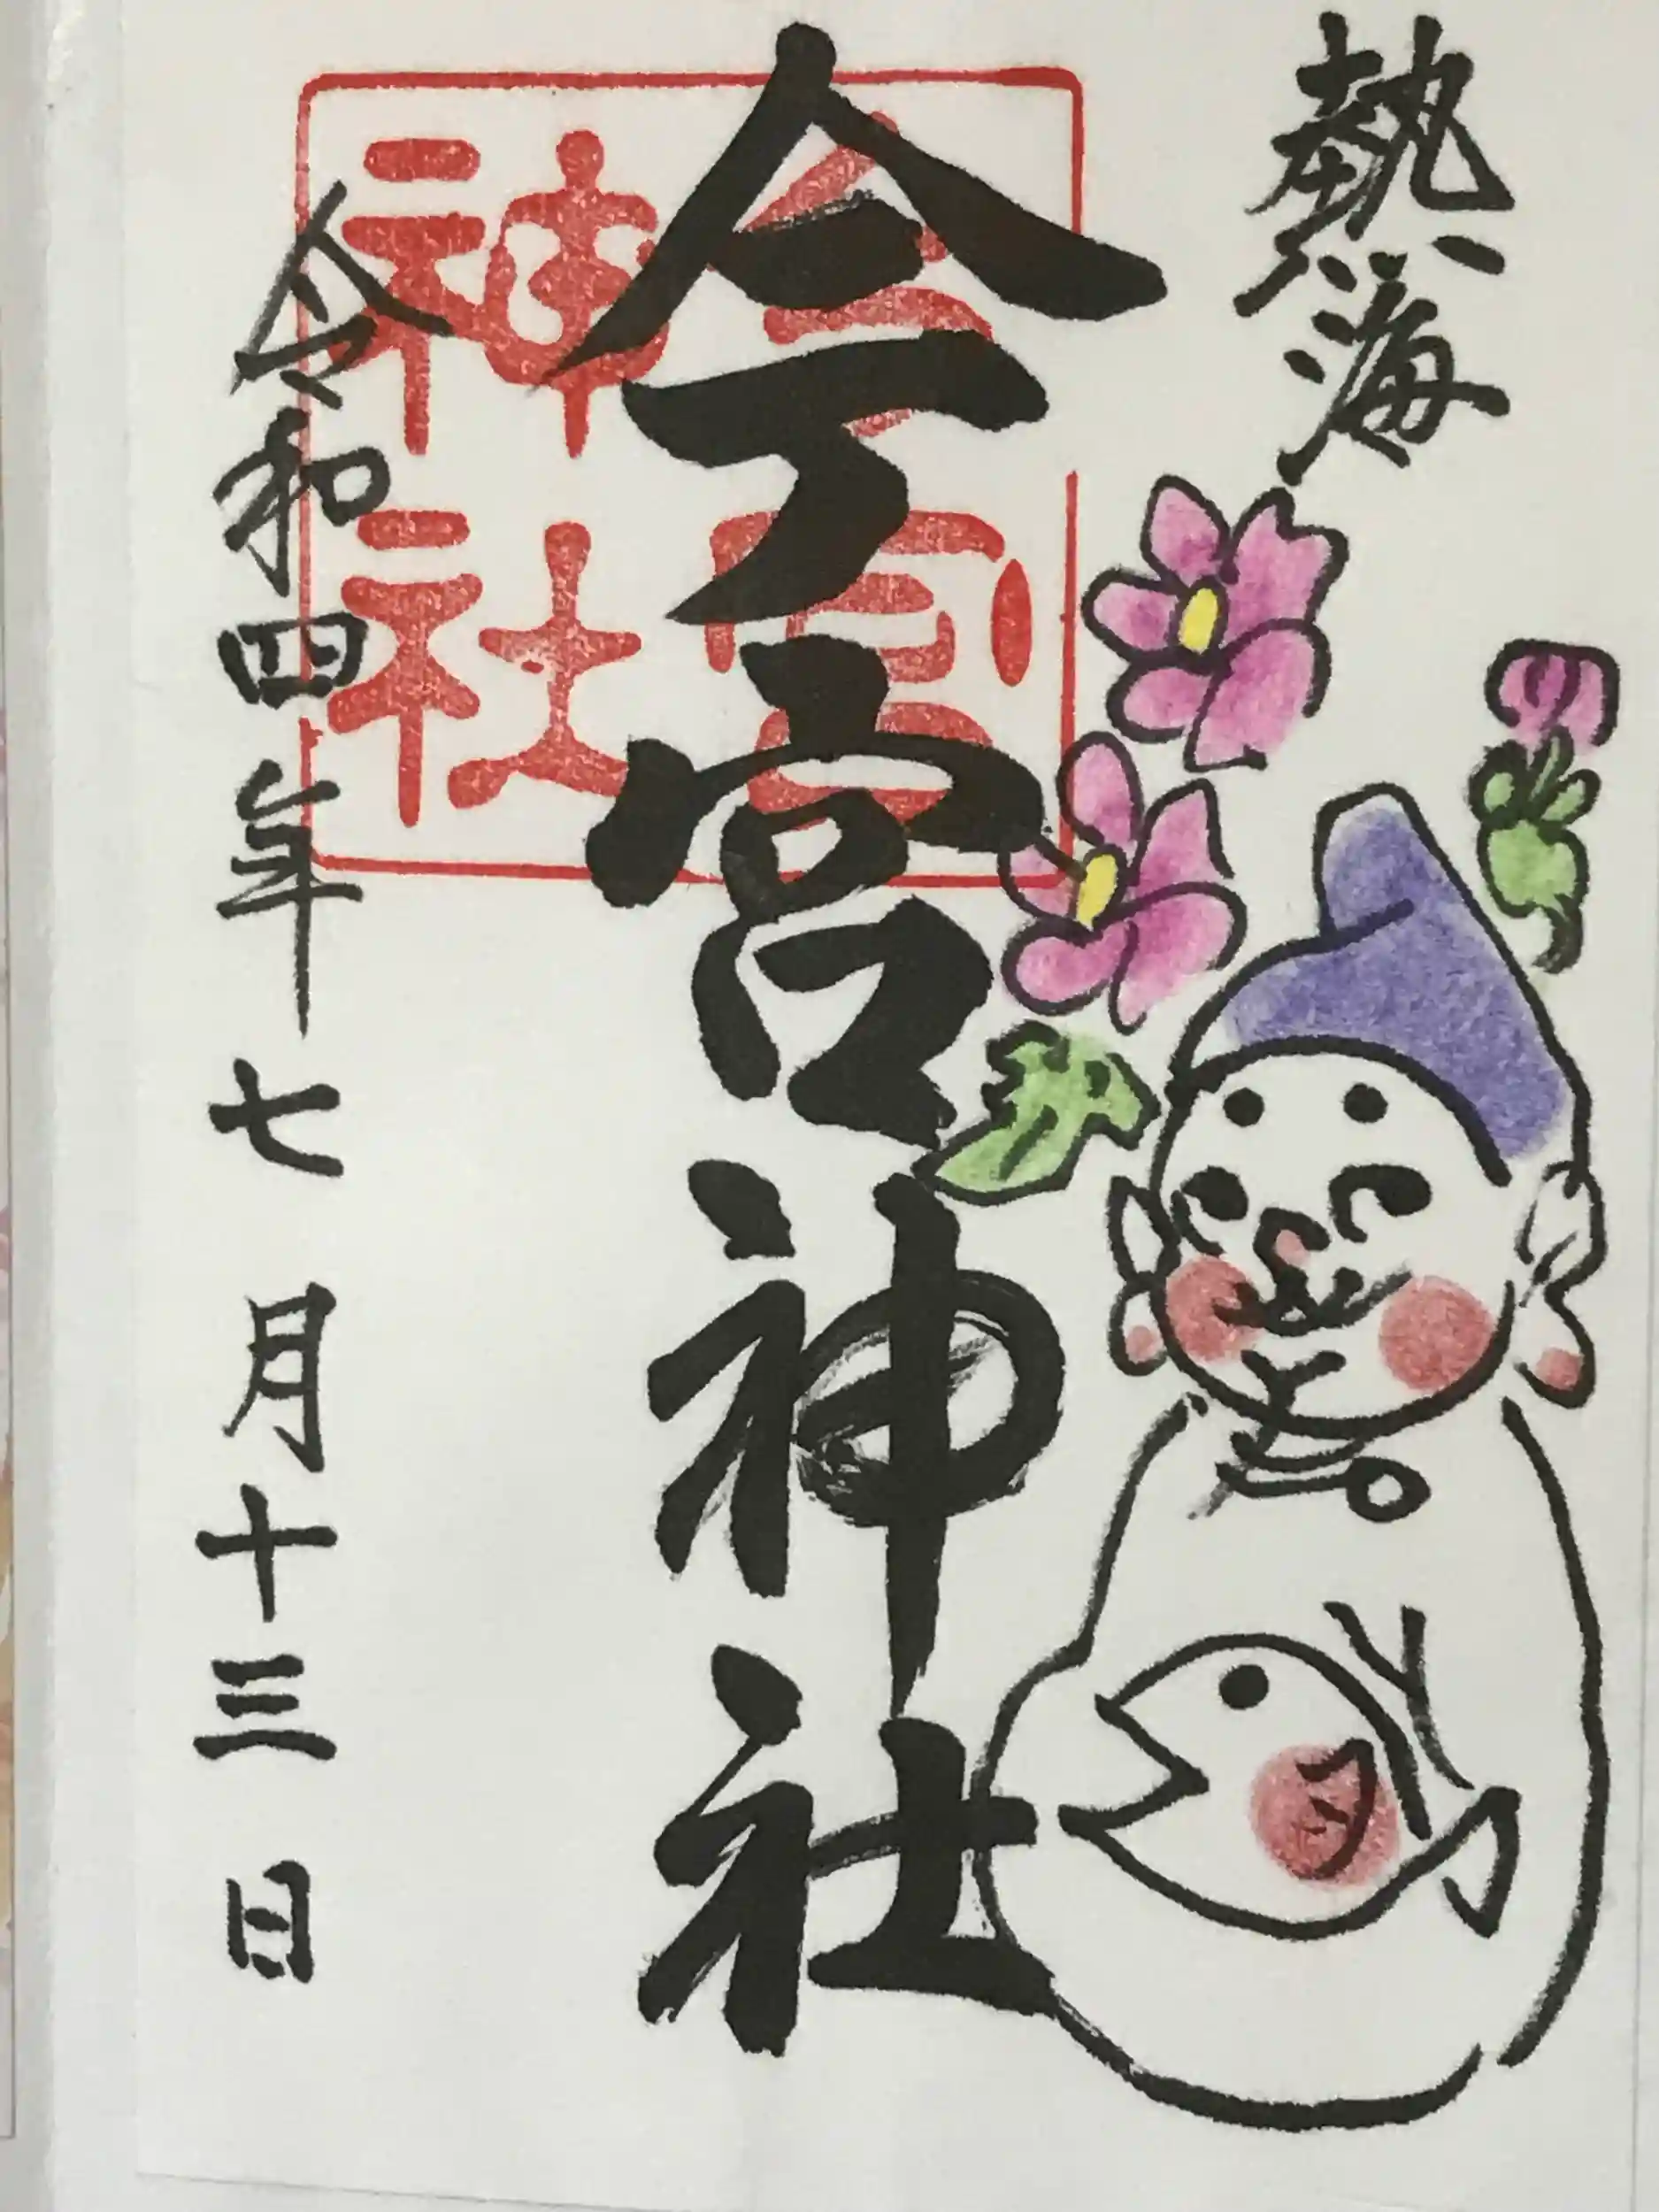 熱海
今宮神社
今宮神社
令和四年七月十三日